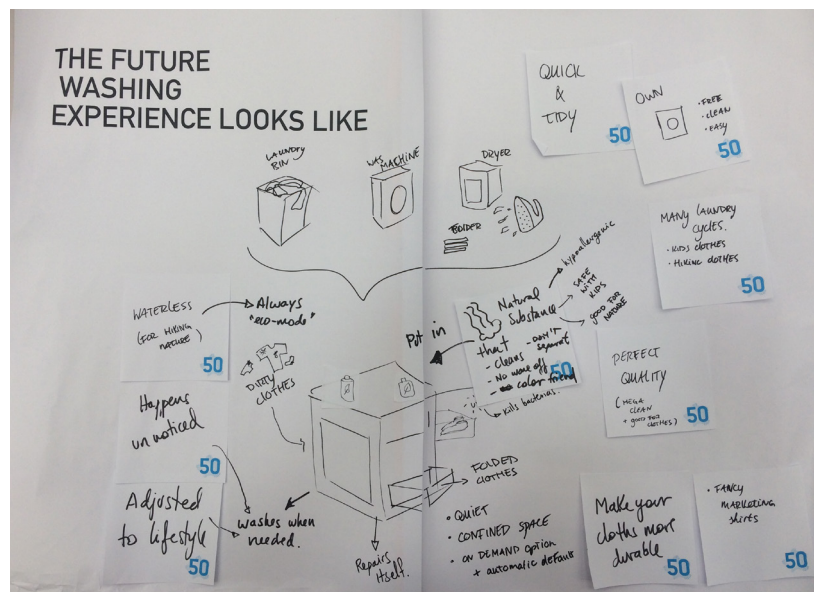 THE FUTURE
WASHING
EXPERIENCE LOOKS LIKE
QUICK
&
TIDY
50
OWN
• FREE
• CLEAN
• EASY
50
LAUNDRY
BIN
WAS
MACHINE
DRYER
FOLDER
MANY LAUNDRY
CYCLES.
• KIDS CLOTHES
• HIKING CLOTHES
50
WATERLESS
(FOR HIKING
NATURE)
50
Always
"eco-mode"
Put in
Natural
Substance
that
- cleans
- DON'T
separate
- No wave off
- color friend
50
hypoallergenic
SAFE
WITH
KIDS
GOOD FOR
NATURE
kills bacterias.
PERFECT
QUALITY
(MEGA
CLEAN
+ good for
clothes)
50
DIRTY
CLOTHES
Happens
unnoticed
50
Adjusted
to lifestyle
50
washes when
needed.
FOLDED
CLOTHES
• QUIET
• CONFINED SPACE
• ON DEMAND OPTION
+ automatic default
Repairs
Itself.
Make your
cloths more
durable
50
• FANCY
MARKETING
shirts
50